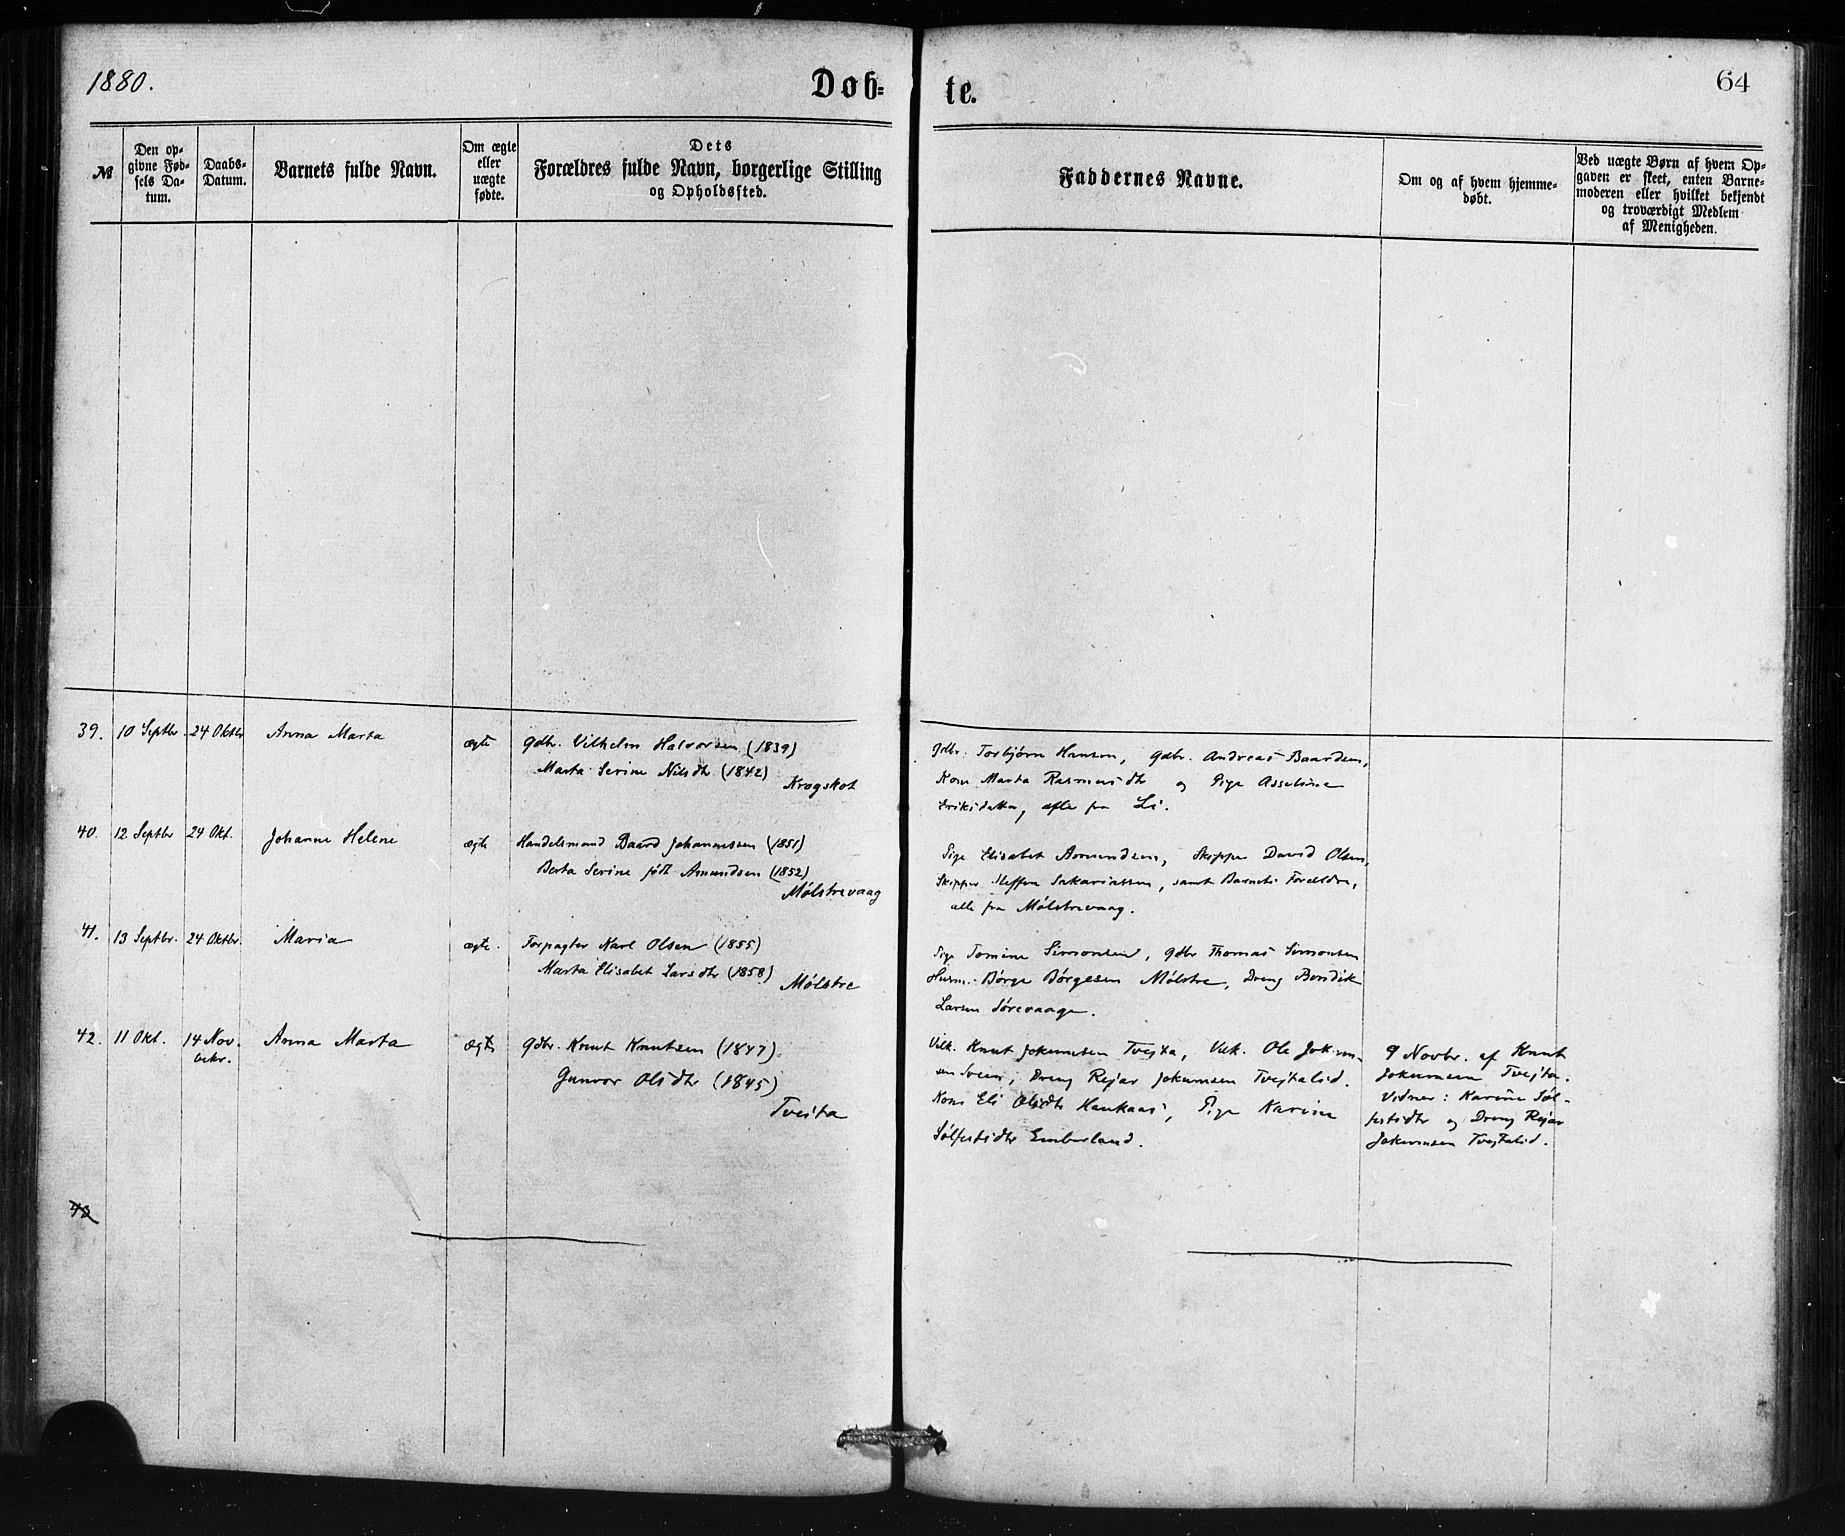 1880.
Døb=
te.
64
№
Den op-
givne Fød-
sels Da-
tum.
Daabs-
Datum.
Barnets fulde Navn.
Om ægte
eller
uægte
fødte.
Dets
Forældres fulde Navn, borgerlige Stilling
og Opholdssted.
Faddernes Navne.
Om og af hvem hjemme-
døbt.
Ved uægte Børn af hvem Op-
gaven er skeet, enten Barne-
moderen eller hvilket bekjendt
og troværdigt Medlem
af Menigheden.
39. 10 Septbr. 24 Oktbr Anna Marta ægte Gdbr. Vilhelm Halvorsen (1839)
Marta Serine Nilsdtr (1842)
Krogskot
Gdbr. Torbjørn Hansen, Gdbr. Andreas Baardsen,
Kone Marta Rasmusdtr og Pige Asseline
Eriksdatter, alle fra Li.
40. 12 Septbr 24 Okt. Johanne Helene ægte Handelsmand Baard Johannessen (1851)
Berta Serine født Amundsen (1852)
Mølstrevaag
Pige Elisabet Amundsen, Skipper David Olsen,
Skipper Steffen Sakariassen, samt Barnets Forældre,
alle fra Mølstrevaag.
41. 13 Septbr. 24 Oktbr. Maria ægte. Forpagter Karl Olsen (1855)
Marta Elisabet Larsdtr (1858)
Mølstre
Pige Tomine Simonsen, Gdbr Thomas Simonsen
Husm. Børge Børgesen Mølstre, Dreng Bendik
Larsen Sørevaage.
42. 11 Okt. 14 Nov. Anna Marta ægte Gdbr. Knut Knutsen (1847)
bekr.
Gunvor Olsdtr (1845)
Tveita
Knut Jokumsen Tvejta, Ole Jokum-
sen Sveen, Dreng Rejar Jokumsen Tvejtalid.
Kone Eli Olsdtr Haukaas, Pige Karine
Sølfestsdtr Emberland.
9 Novbr. af Knut
Jokumsen Tvejta.
Vidner: Karine Søl-
festsdtr og Dreng Rejar
Jokumsen Tvejtalid.
43